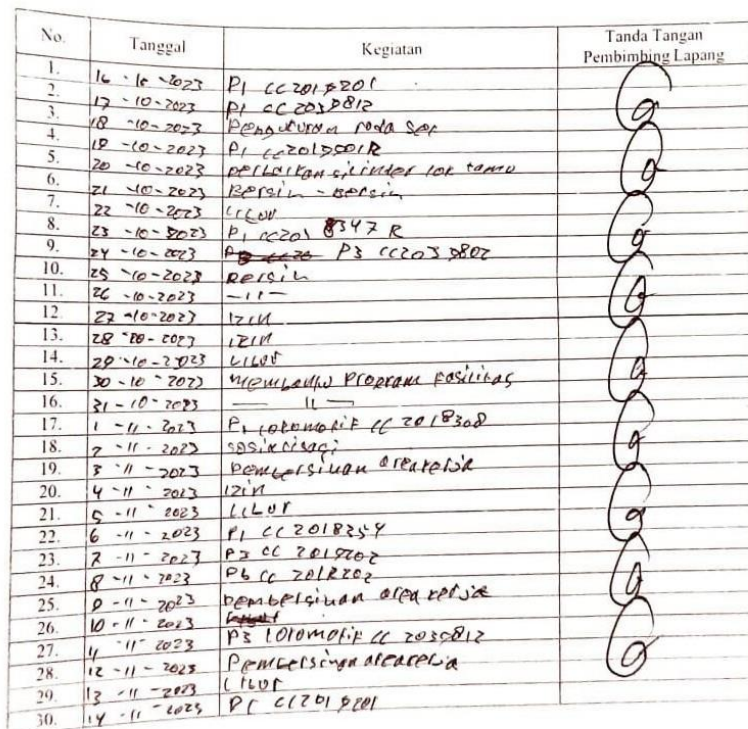 No. Tanggal Kegiatan Tanda Tangan Pembimbing Lapang
1. 16 - 10 - 2023 P1 CC2019201
2. 17 - 10 - 2023 P1 CC2039812
3. 18 - 10 - 2023 Pengukuran roda
4. 19 - 10 - 2023 P1 CC2019501R
5. 20 - 10 - 2023 perbaikan silinder lok tamu
6. 21 - 10 - 2023 Bersih - Bersih
7. 22 - 10 - 2023 Libur
8. 23 - 10 - 2023 P1 CC201 8347 R
9. 24 - 10 - 2023 P3 CC203 9802
10. 25 - 10 - 2023 Bersih
11. 26 - 10 - 2023 - 11 -
12. 27 - 10 - 2023 izin
13. 28 - 20 - 2023 izin
14. 29 - 10 - 2023 Libur
15. 30 - 10 - 2023 Membantu Program Fasilitas
16. 31 - 10 - 2023 - 11 -
17. 1 - 11 - 2023 P1 Lokomotif CC 2018308
18. 2 - 11 - 2023
19. 3 - 11 - 2023 Pembersihan area kerja
20. 4 - 11 - 2023 izin
21. 5 - 11 - 2023 Libur
22. 6 - 11 - 2023 P1 CC 2018354
23. 7 - 11 - 2023 P3 CC 2019202
24. 8 - 11 - 2023 P6 CC
25. 9 - 11 - 2023 Pembersihan area kerja
26. 10 - 11 - 2023
27. 11 - 11 - 2023 P3 Lokomotif CC 2039812
28. 12 - 11 - 2023 Pembersihan area kerja
29. 13 - 11 - 2023 Libur
30. 14 - 11 - 2023 P1 CC2019201